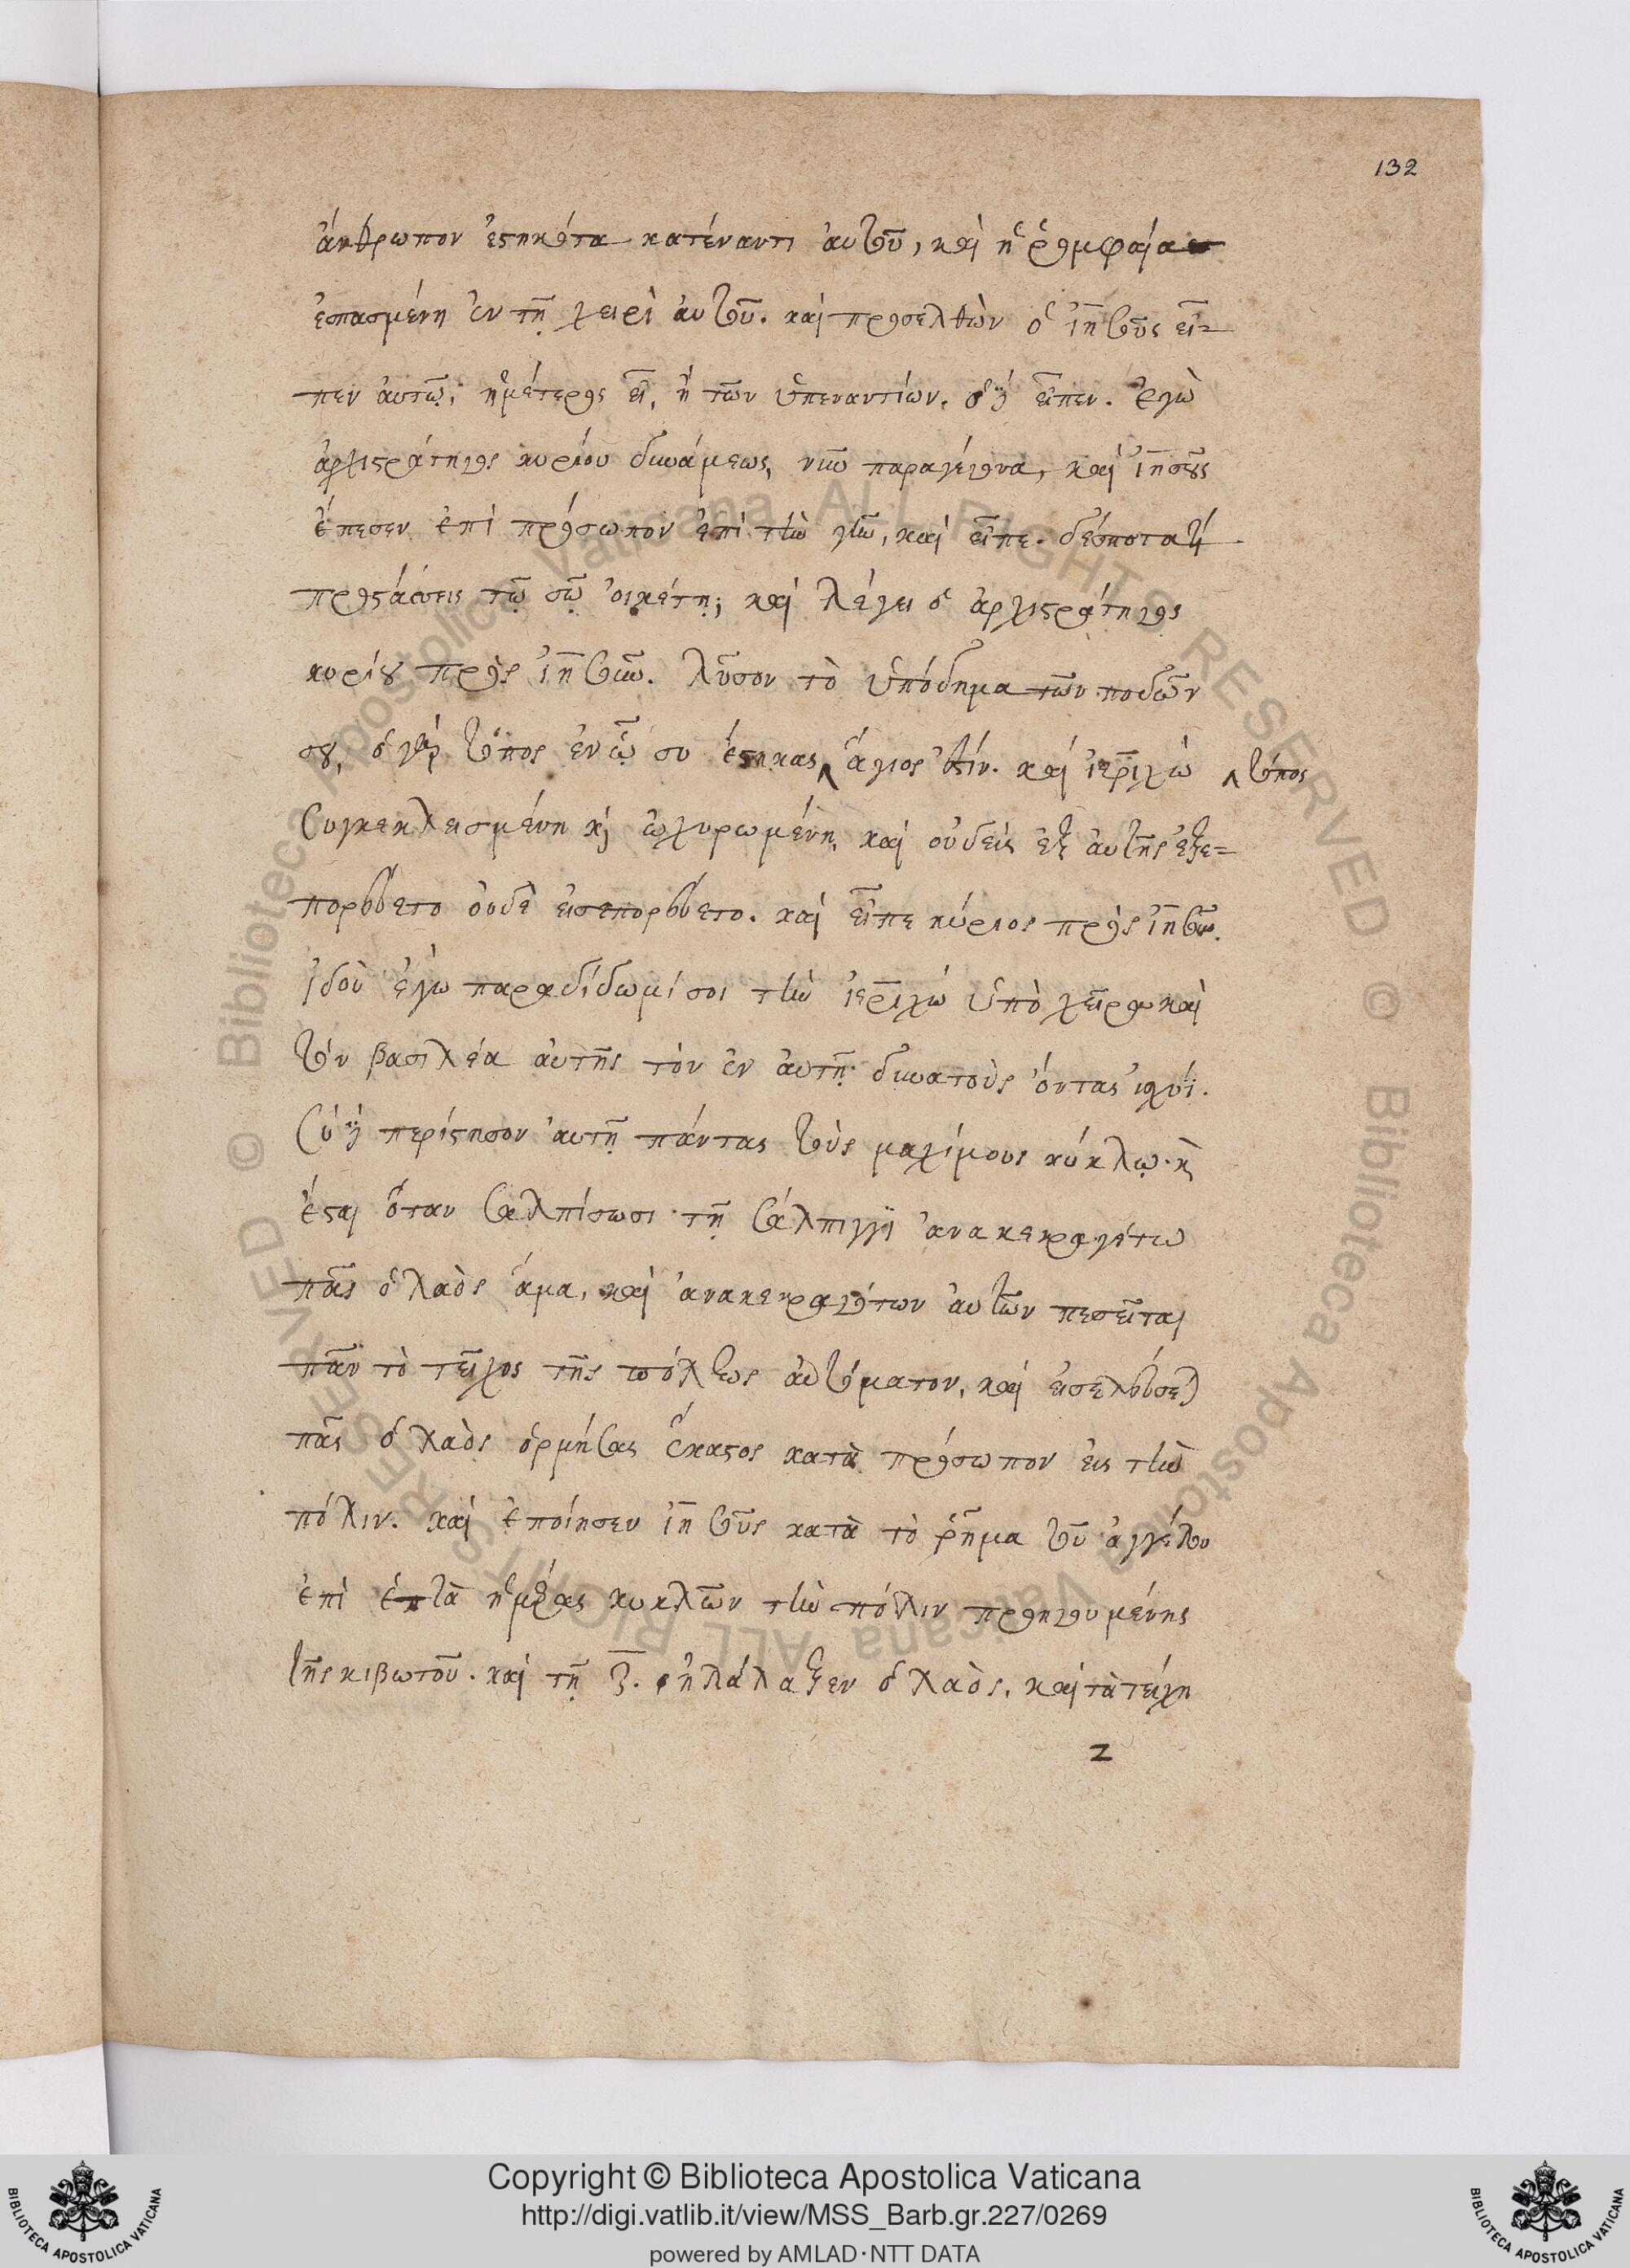 132
ἄνθρωπον ἑστηκότα κατέναντι αὐτοῦ, καὶ ἡ ῥομφαία
ἐσπασμένη ἐν τῇ χειρὶ αὐτοῦ. καὶ προσελθὼν ὁ ἰησοῦς εἶ-
πεν αὐτῷ. ἡμέτερος εἶ, ἢ τῶν ὑπεναντίων. ὁ δὲ εἶπεν. ἐγὼ
ἀρχιστράτηγος κυρίου δυνάμεως, νῦν παραγέγονα, καὶ ἰησοῦς
ἔπεσεν ἐπὶ πρόσωπον ἐπὶ τὴν γῆν, καὶ εἶπε. δέσποτα τί
προστάσσεις τῷ σῷ οἰκέτῃ; καὶ λέγει ὁ ἀρχιστράτηγος
κυρίου πρὸς ἰησοῦν. λῦσον τὸ ὑπόδημα τῶν ποδῶν
σου, ὁ γὰρ τόπος ἐν ᾧ συ ἕστηκας ‸ ἅγιος ἐστίν. καὶ ἱεριχὼ ‸ τόπος
συγκεκλεισμένη καὶ ὠχυρωμένη, καὶ οὐδεὶς ἐξ αὐτῆς ἐξε-
πορεύετο οὐδὲ εἰσεπορεύετο. καὶ εἶπε κύριος πρὸς ἰησοῦν.
ἰδοὺ ἐγὼ παραδίδωμί σοι τὴν ἱεριχὼ ὑπὸ χεῖρα καὶ
τὸν βασιλέα αὐτῆς τὸν ἐν αὐτῇ δυνατοὺς ὄντας ἰσχύϊ.
σὺ δὲ περίστησον αὐτῇ πάντας τοὺς μαχίμους κύκλῳ. καὶ
ἔσται ὅταν σαλπίσωσι τῇ σάλπιγγϊ ἀνακεκραγέτω
πᾶς ὁ λαὸς ἅμα, καὶ ἀνακεκραγότων αὐτῶν πεσεῖται
πᾶν τὸ τεῖχος τῆς πόλεως αὐτόματον, καὶ εἰσελεύσεται
πᾶς ὁ λαὸς ὁρμήσας ἕκαστος κατὰ πρόσωπον εἰς τὴν
πόλιν. καὶ ἐποίησεν ἰησοῦς κατὰ τὸ ῥῆμα τοῦ ἀγγέλου
ἐπὶ ἑπτὰ ἡμέρας κυκλῶν τὴν πόλιν προηγουμένης
τῆς κιβωτοῦ. καὶ τῇ ζ. ἠλάλαξεν ὁ λαὸς, καὶ τὰ τείχη
z
© Biblioteca Apostolica Vaticana ALL RIGHTS RESERVED © Biblioteca Apostolica Vaticana ALL RIGHTS RESERVED
Copyright © Biblioteca Apostolica Vaticana
http://digi.vatlib.it/view/MSS_Barb.gr.227/0269
powered by AMLAD·NTT DATA
BIBLIOTECA APOSTOLICA VATICANA
BIBLIOTECA APOSTOLICA VATICANA